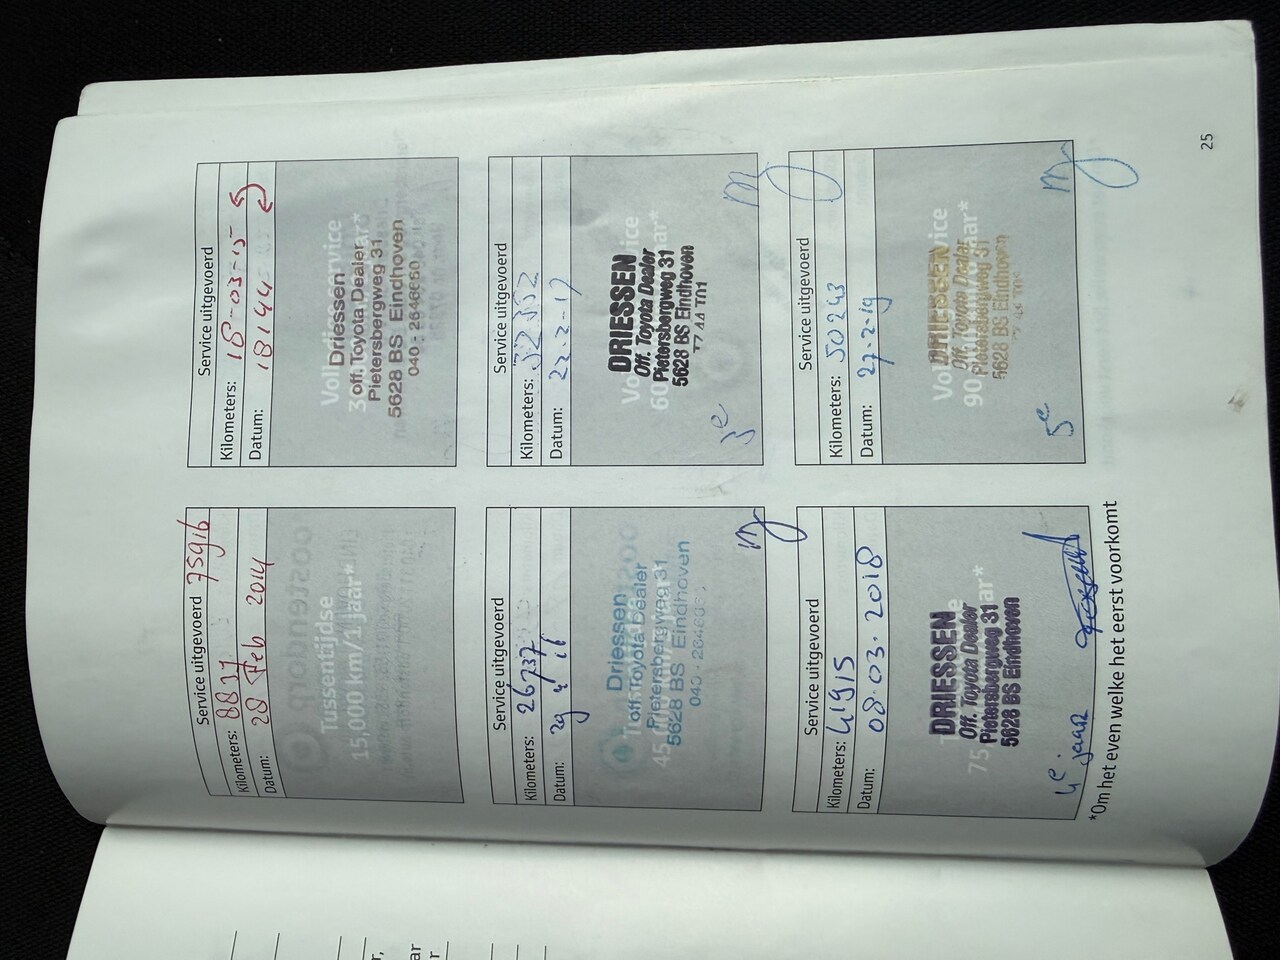 Service uitgevoerd 75916
Kilometers: 8837
Datum: 28 Feb 2014
Tussentijdse
15,000 km/1 jaar*
Service uitgevoerd
Kilometers: 18-03-15
Datum: 18144
Driessen
off. Toyota Dealer
Pietersbergweg 31
5628 BS Eindhoven
040 - 2646060
Service uitgevoerd
Kilometers: 26737
Datum: 29 4 16
Driessen
off. Toyota Dealer
Pietersbergweg 31
5628 BS Eindhoven
Service uitgevoerd
Kilometers: 32552
Datum: 22-2-17
DRIESSEN
Off. Toyota Dealer
Pietersbergweg 31
5628 BS Eindhoven
3e
Service uitgevoerd
Kilometers: 41915
Datum: 08.03.2018
DRIESSEN
Off. Toyota Dealer
Pietersbergweg 31
5628 BS Eindhoven
4e. jaar
Service uitgevoerd
Kilometers: 50243
Datum: 27-2-19
DRIESSEN
Off. Toyota Dealer
Pietersbergweg 31
5628 BS Eindhoven
5e
*Om het even welke het eerst voorkomt
25